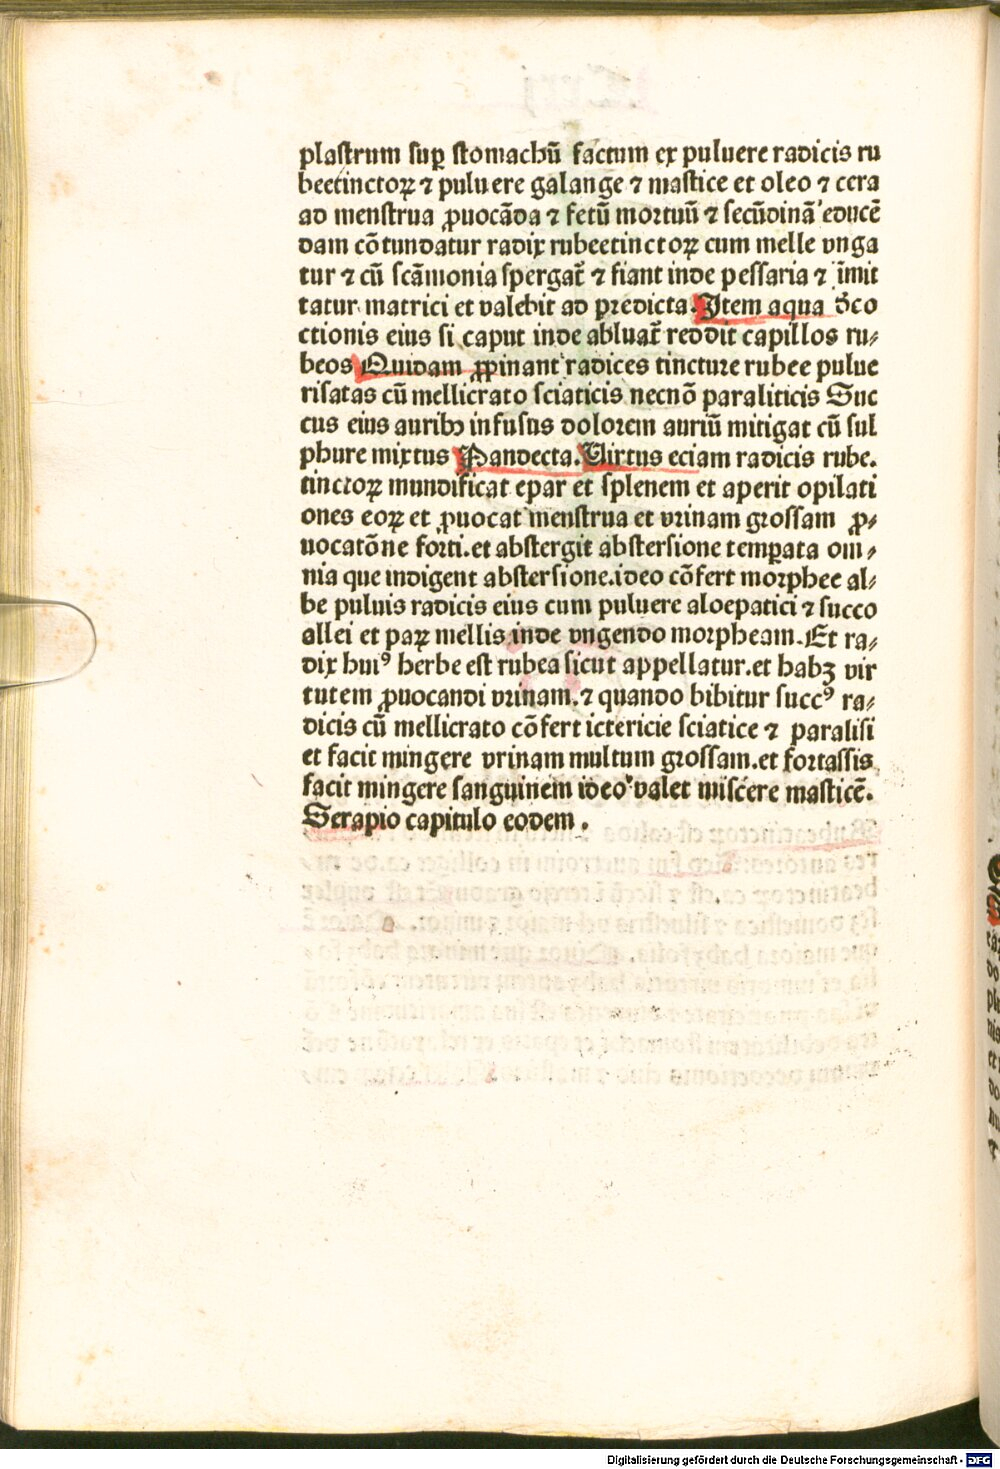 plastrum suꝑ stomachū factum ex puluere radicis ru
beetinctoꝝ ⁊ puluere galange ⁊ mastice et oleo ⁊ cera
ad menstrua ꝓuocāda ⁊ fetū mortuū ⁊ secūdinā educē
dam cōtundatur radix rubeetinctoꝝ cum melle vnga
tur ⁊ cū scāmonia spergat̄ ⁊ fiant inde pessaria ⁊ īmit
tatur matrici et valebit ad predicta. Item aqua d̄co
ctionis eius si caput inde abluat̄ reddit capillos ru⸗
beos Quidam ꝓpinant radices tincture rubee pulue
risatas cū mellicrato sciaticis necnō paraliticis Suc
cus eius auribꝫ infusus dolorem auriū mitigat cū sul
phure mixtus Pandecta. Virtus eciam radicis rube.
tinctoꝝ mundificat epar et splenem et aperit opilati
ones eoꝝ et ꝓuocat menstrua et vrinam grossam ꝓ⸗
uocatōne forti. et abstergit abstersione temꝑata om⸗
nia que indigent abstersione. ideo cōfert morphee al⸗
be puluis radicis eius cum puluere aloepatici ⁊ succo
allei et paꝝ mellis inde vngendo morpheam. Et ra⸗
dix huiꝰ herbe est rubea sicut appellatur. et habꝫ vir
tutem ꝓuocandi vrinam. ⁊ quando bibitur succꝰ ra⸗
dicis cū mellicrato cōfert ictericie sciatice ⁊ paralisi
et facit mingere vrinam multum grossam. et fortassis
facit mingere sanguinem ideo valet miscere masticē.
Serapio capitulo eodem.
Digitalisierung gefördert durch die Deutsche Forschungsgemeinschaft - DFG